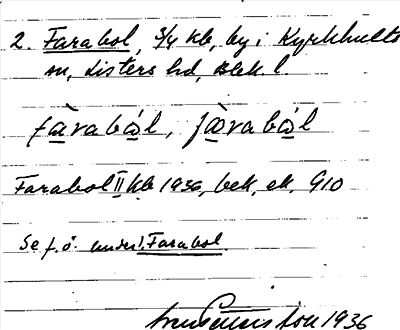 2. Farabol, 3/4 kb, by i Kyrkhults
sn, Listers hd, Blek. l.
fàrabål, fåravål
Farabol II kb 1936, bek, ek, 910
Se f. ö. under 1. Farabol.
1936